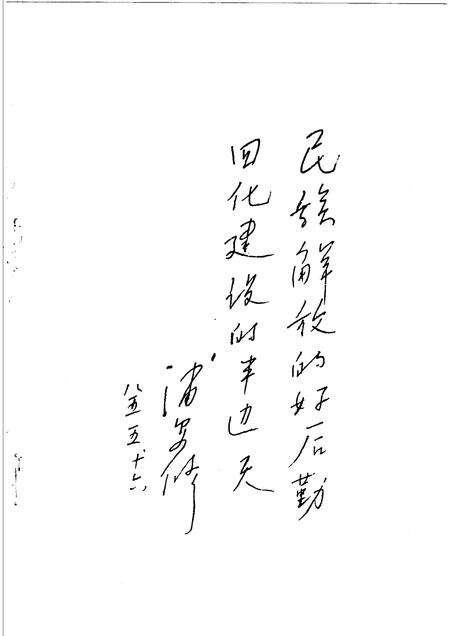 民族解放的好后勤
四化建设的半边天
浦安修
八五、五、十六